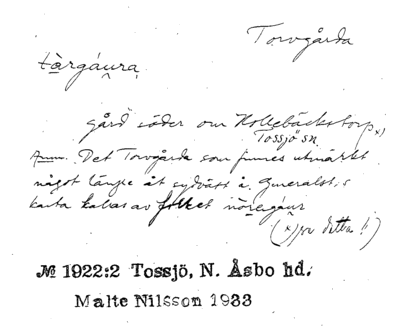 Torvgårda
tòrgáura
gård söder om Kollebäckstorp x)
Tossjö sn.
Anm. Det Torvgårda som finnes utmärkt
något längre åt sydväst å Generalst:s
karta kallas av folket
(x) för detta !)
№ 1922:2 Tossjö, N. Åsbo hd.
Malte Nilsson 1933